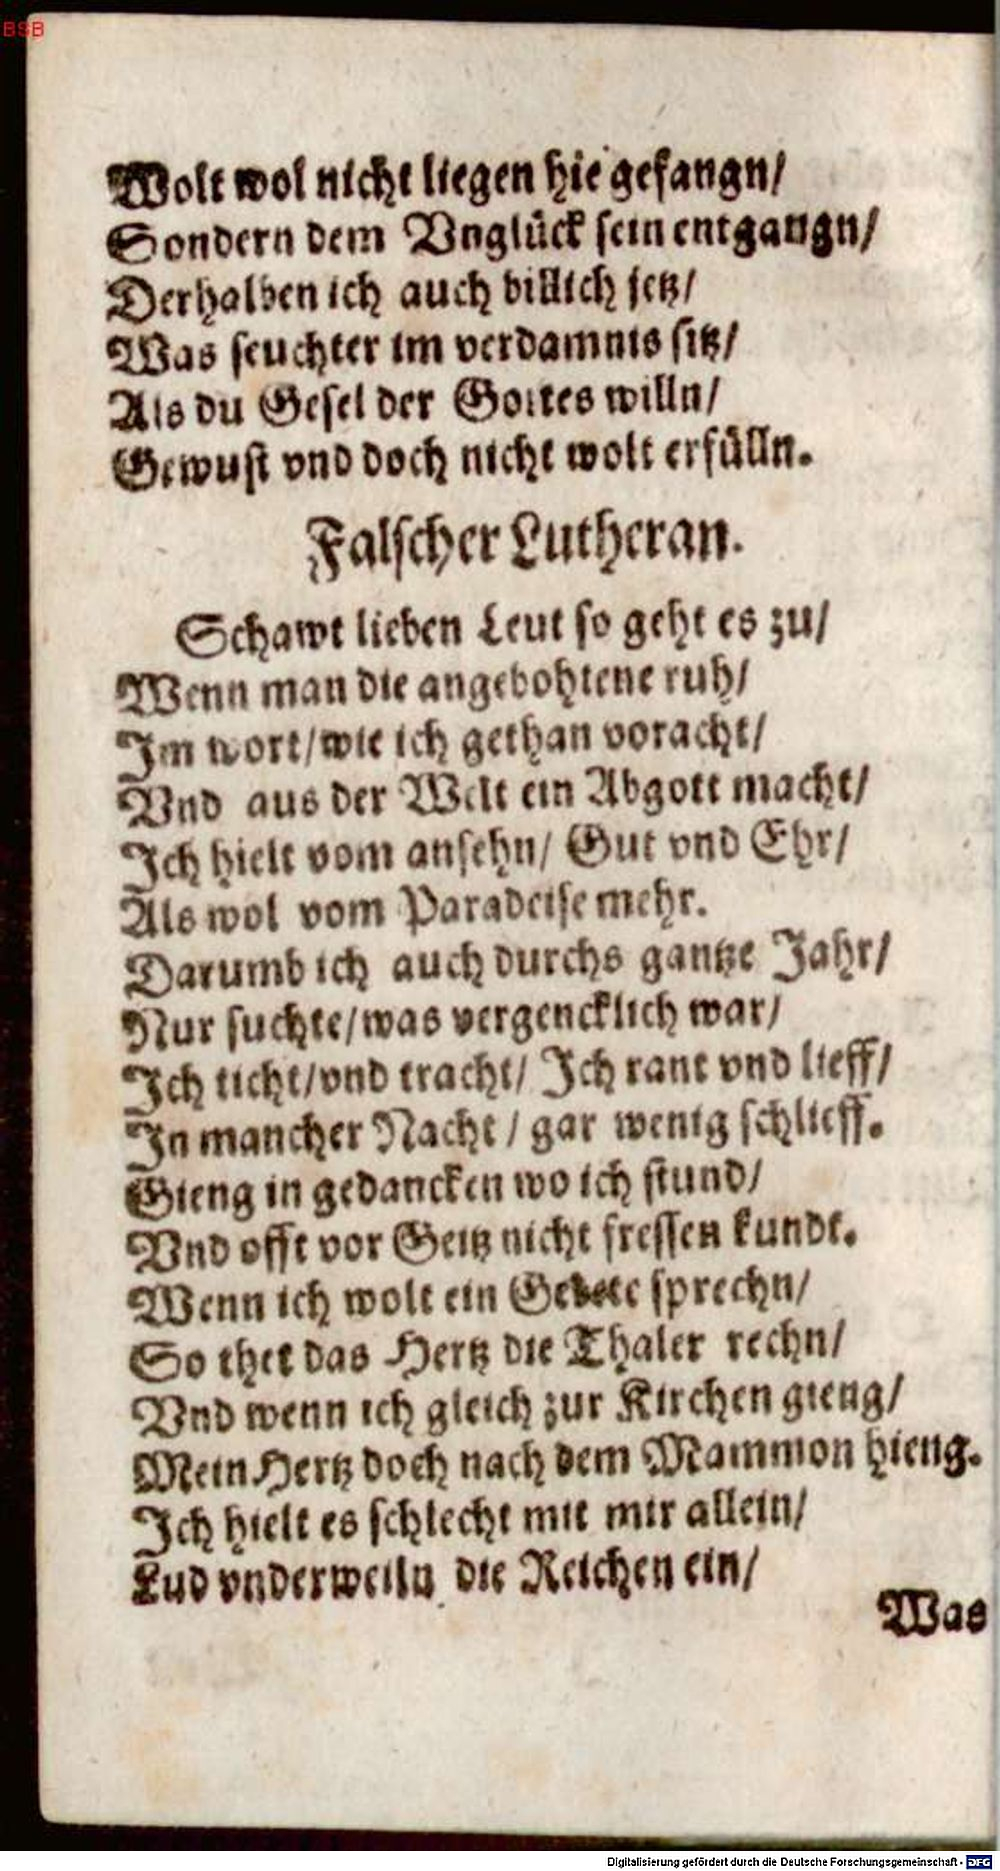 BSB
Wolt wol nicht liegen hie gefangn/
Sondern dem Vnglück sein entgangn/
Derhalben ich auch billich jetz/
Was feuchter im verdamnis sitz/
Als du Gesel der Gottes willn/
Gewust vnd doch nicht wolt erfülln.
Falscher Lutheran.
Schawt lieben Leut so geht es zu/
Wenn man die angebohtene ruh/
Im wort/wie ich gethan voracht/
Vnd aus der Welt ein Abgott macht/
Ich hielt vom ansehn/ Gut vnd Ehr/
Als wol vom Paradeise mehr.
Darumb ich auch durchs gantze Jahr/
Nur suchte/was vergencklich war/
Ich ticht/vnd tracht/ Ich rant vnd lieff/
In mancher Nacht / gar wenig schlieff.
Gieng in gedancken wo ich stund/
Vnd offt vor Geitz nicht fressen kundt.
Wenn ich wolt ein Gebete sprechn/
So thet das Hertz die Thaler rechn/
Vnd wenn ich gleich zur Kirchen gieng/
Mein Hertz doch nach dem Mammon hieng.
Ich hielt es schlecht mit mir allein/
Lud vnderweiln die Reichen ein/
Was
Digitalisierung gefördert durch die Deutsche Forschungsgemeinschaft - DFG